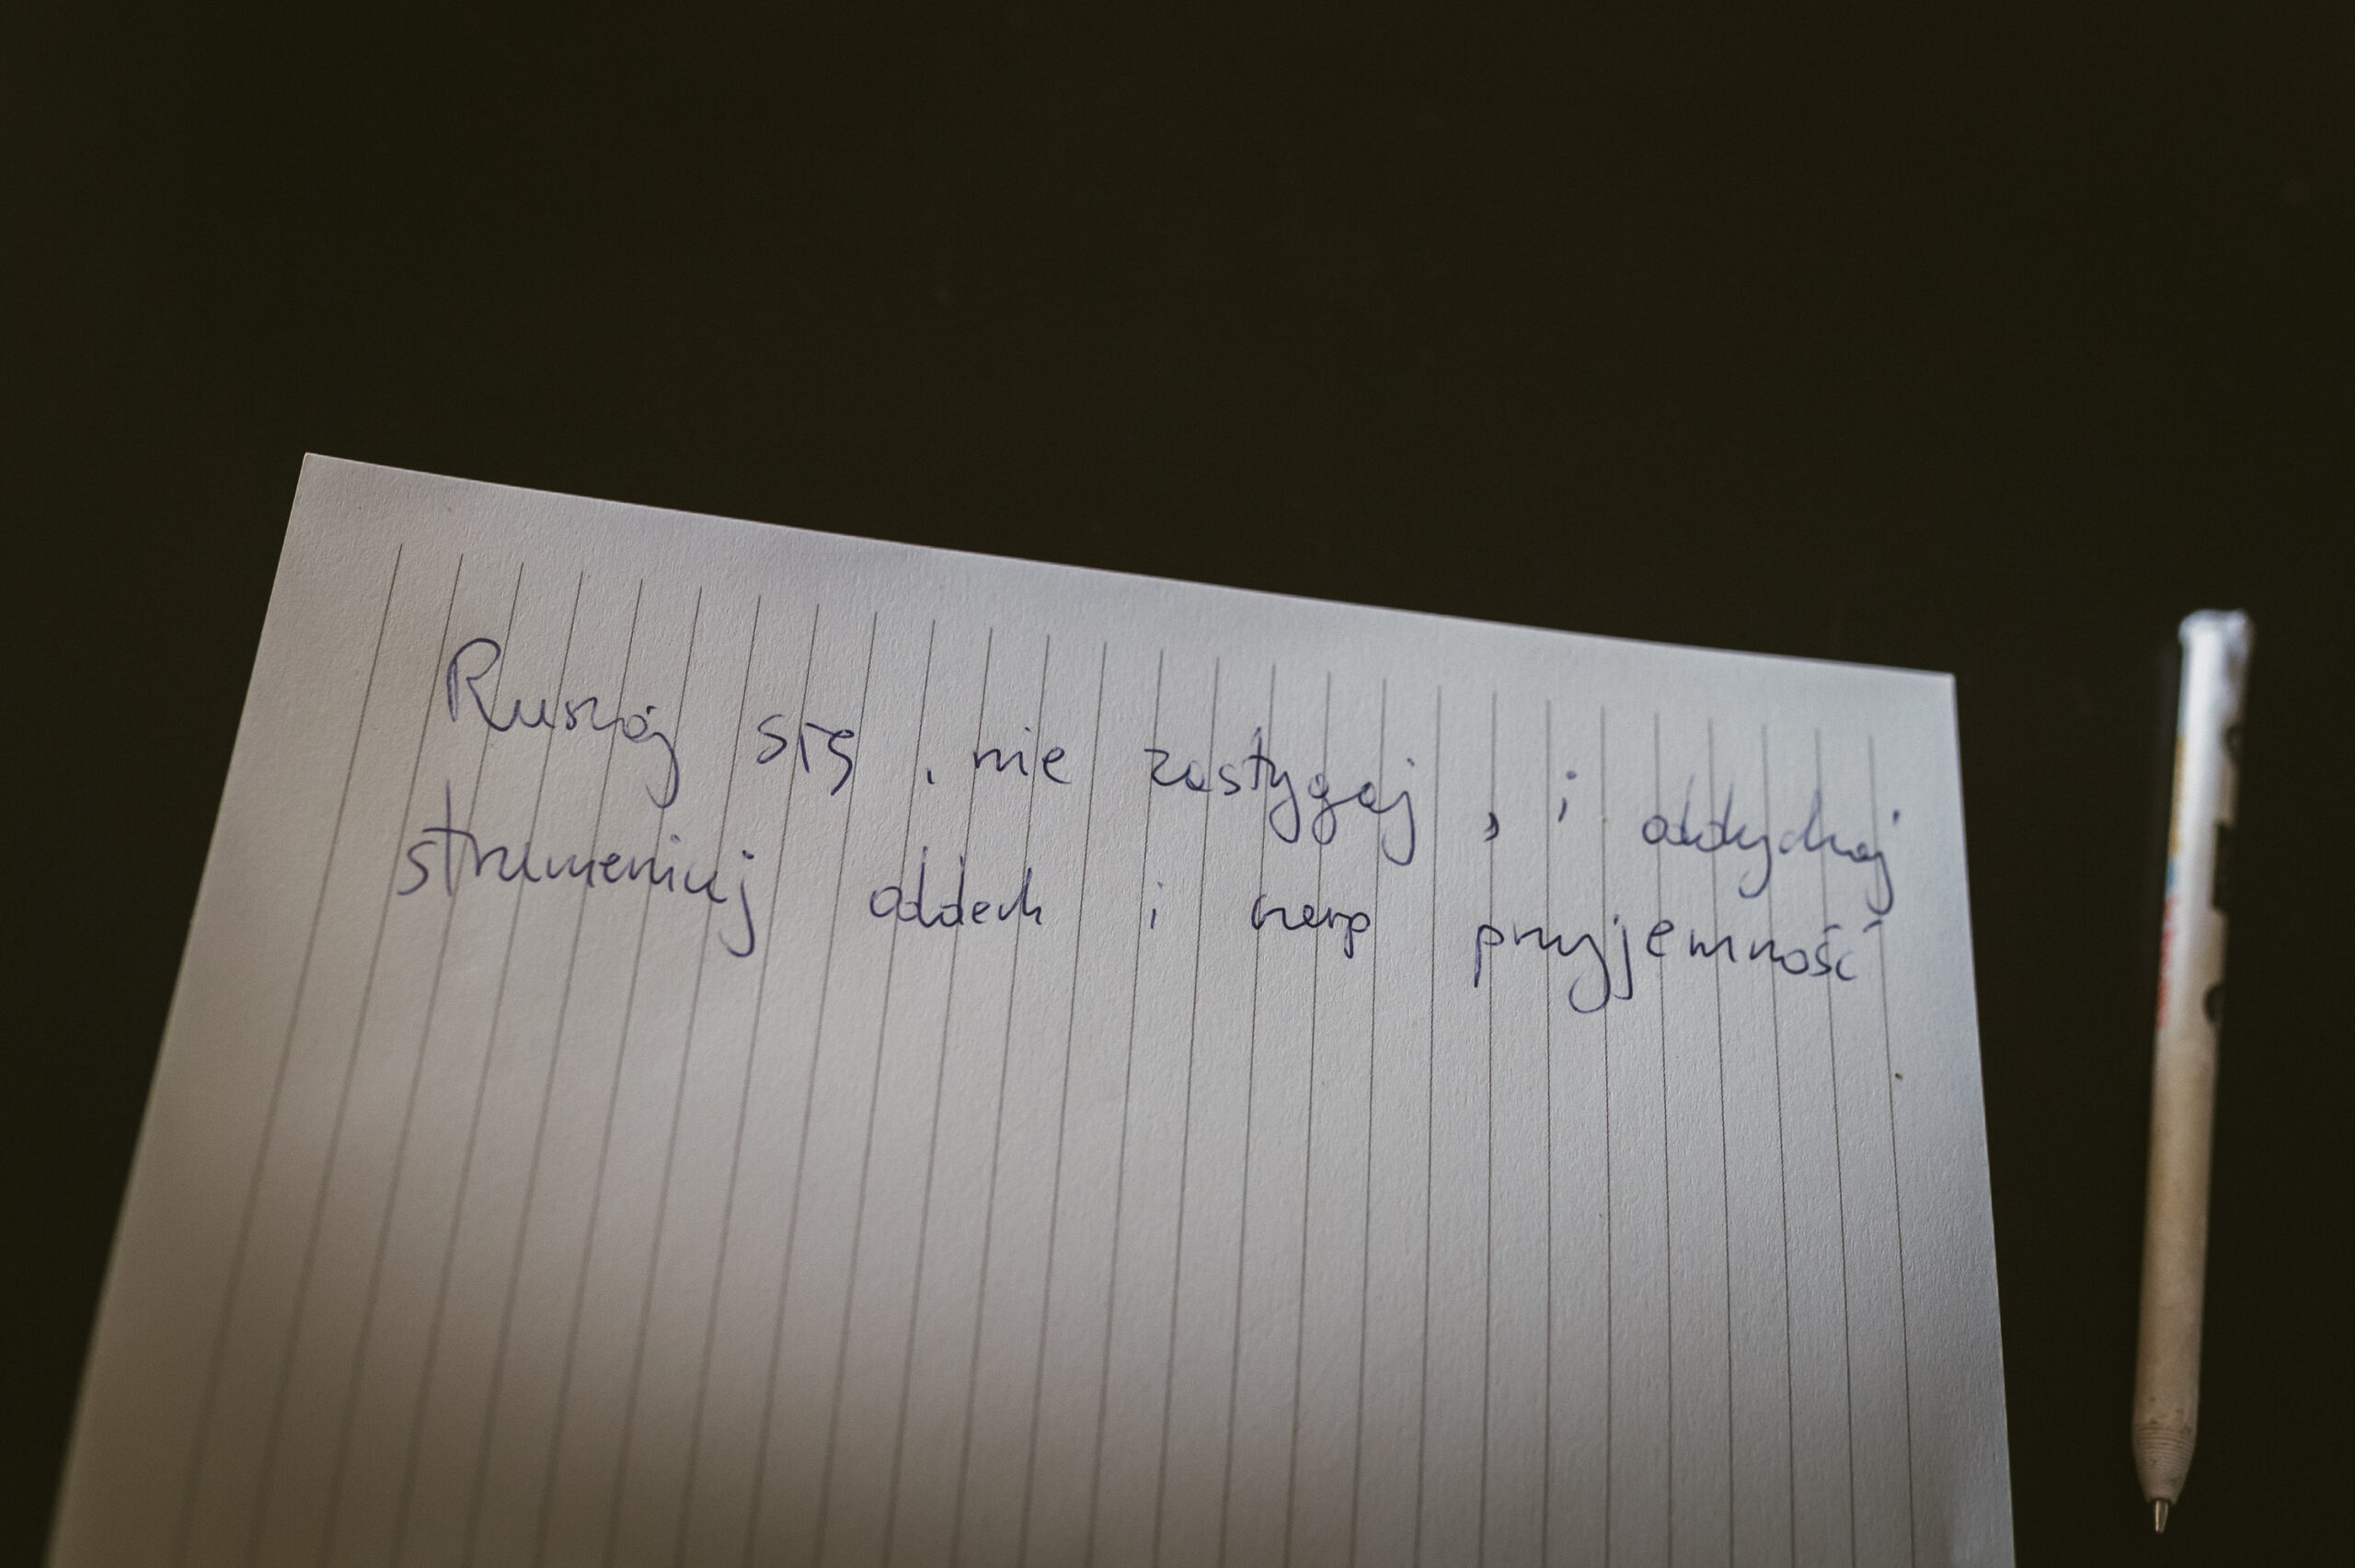 Ruszaj się, nie zastygaj, i oddychaj
strumieniuj oddech i czerp przyjemność